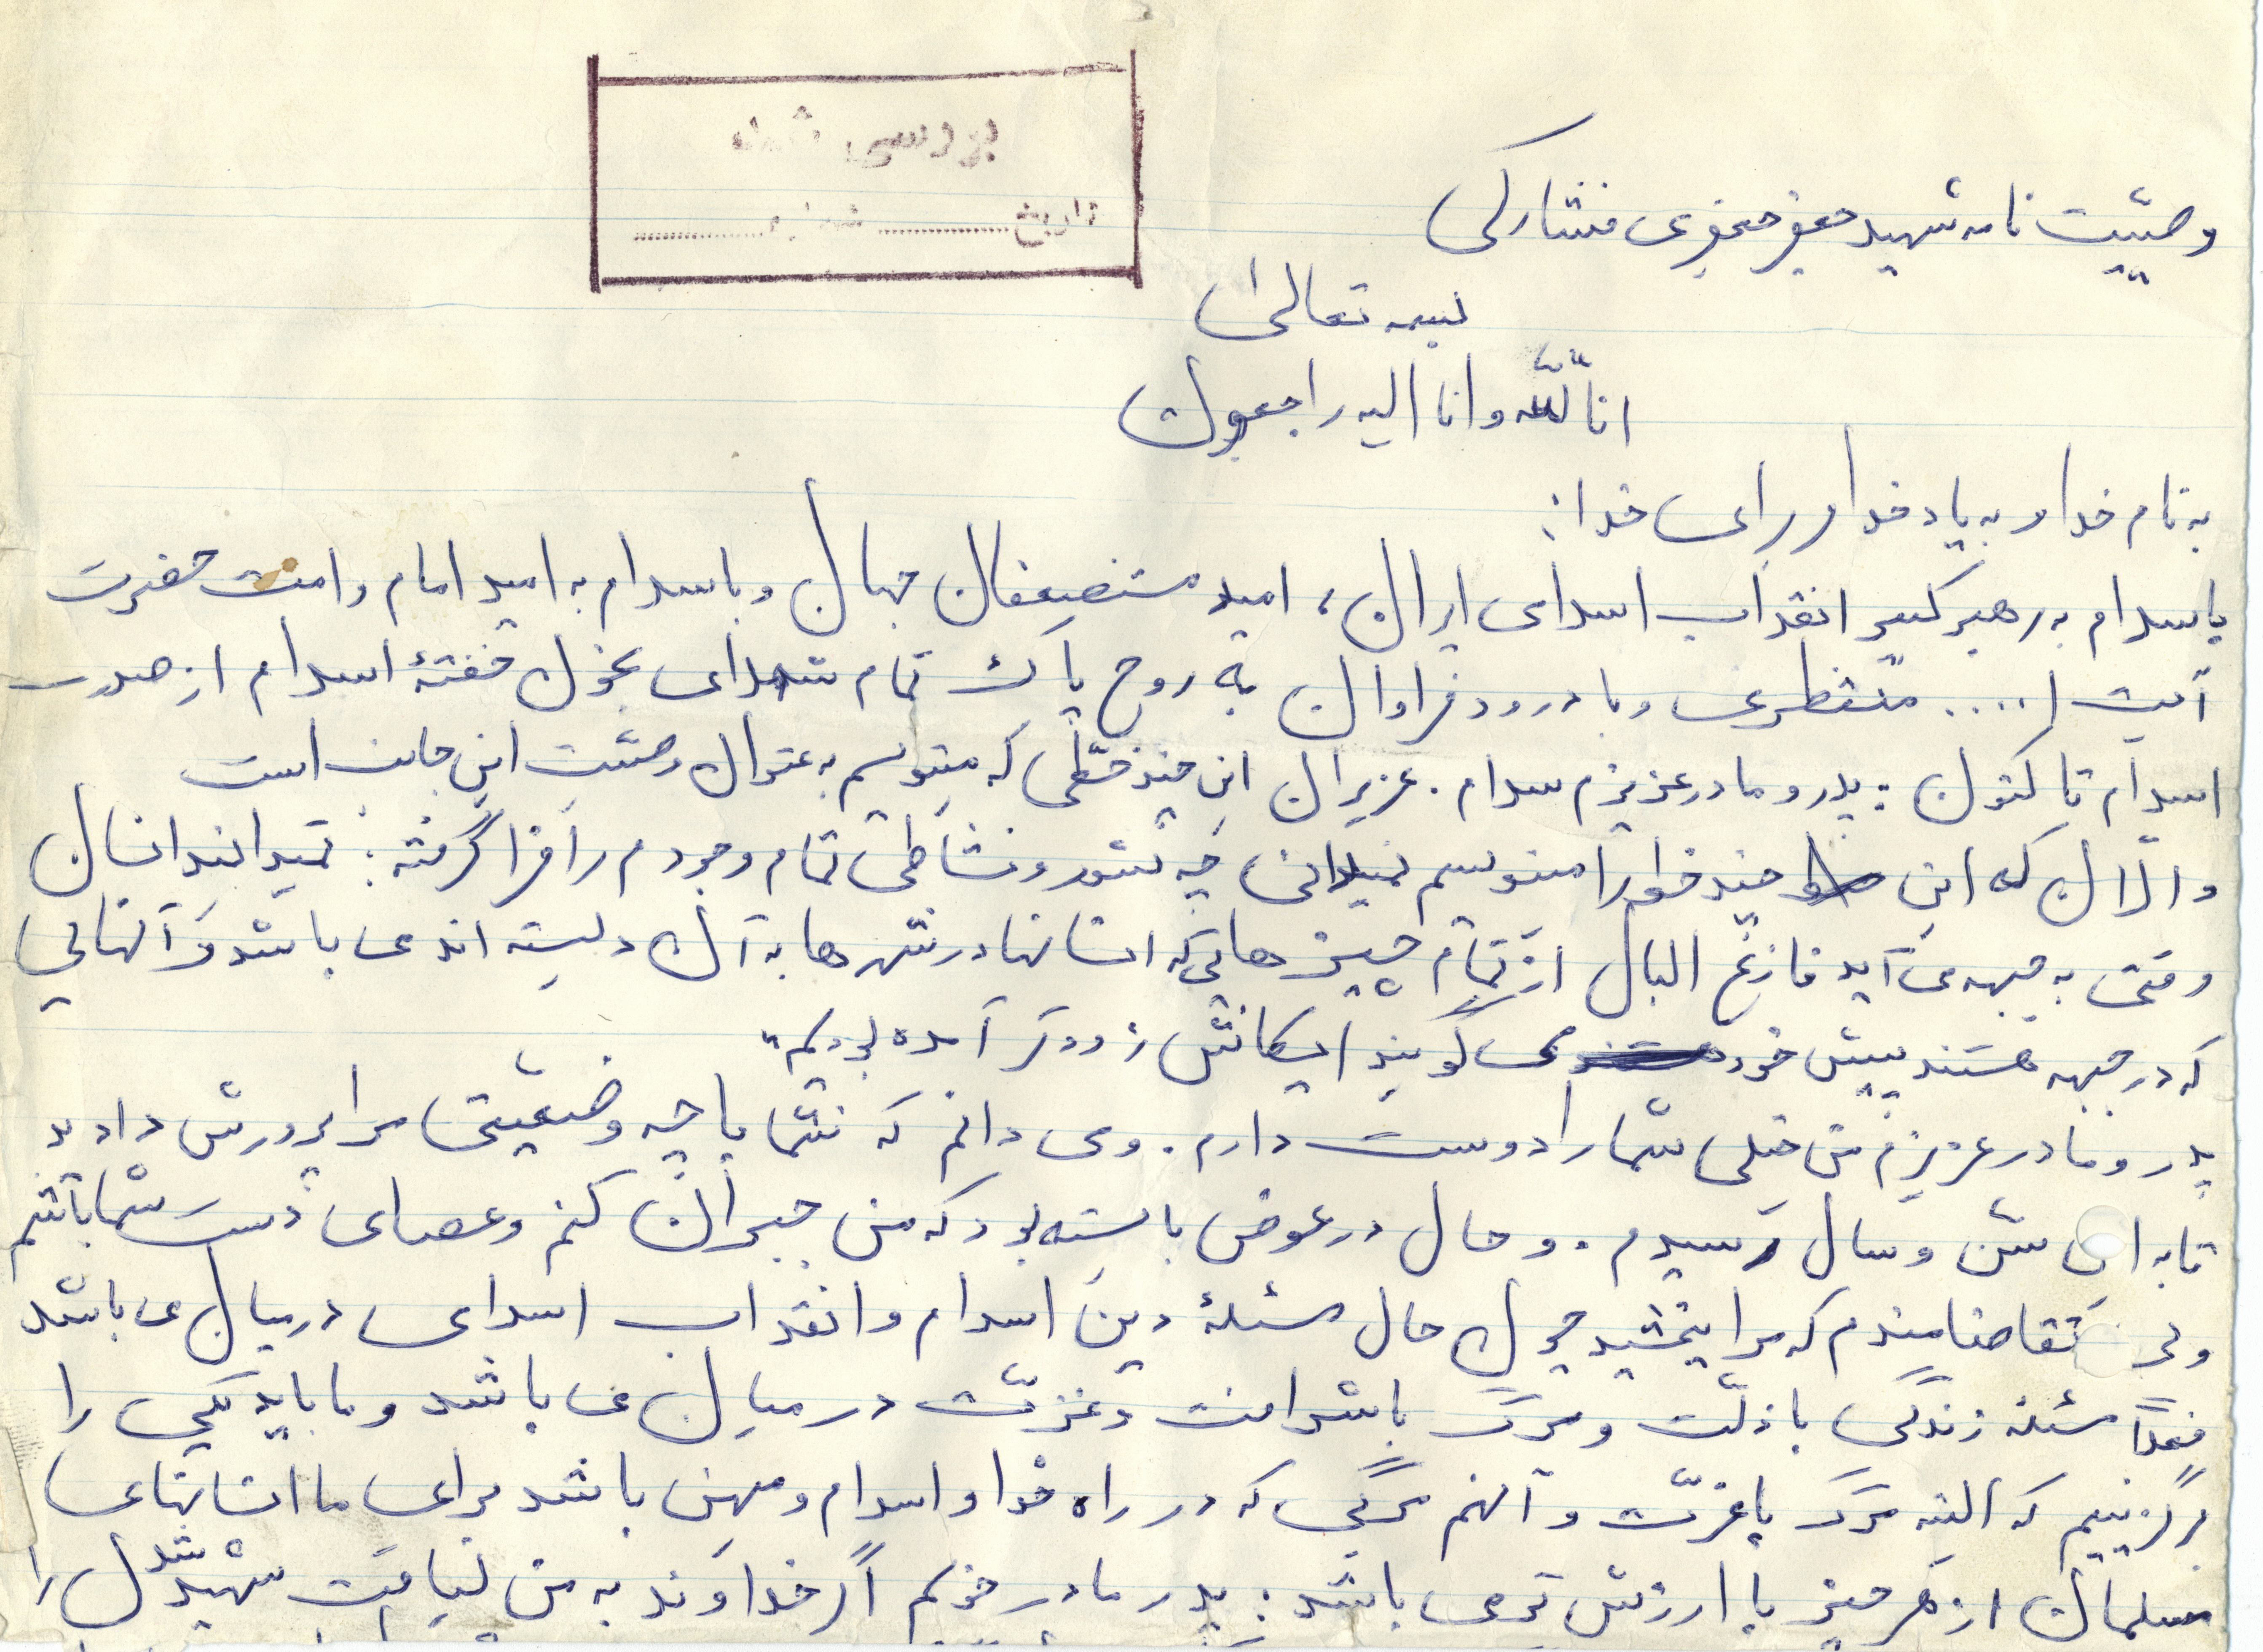 بررسی شد
تاریخ ........ شماره ........
وصیّت نامه شهید جعفر جعفری فشارکی
بسمه تعالی
انا للّه و انا الیه راجعون
به نام خدا و به یاد خدا و برای خدا:
با سلام به رهبر کبیر انقلاب اسلامی ایران، امید مستضعفان جهان و با سلام به امید امام و امت حضرت
آیت ا.... منتظری و با درود فراوان به روح پاک تمام شهدای بخون خفتهٔ اسلام از صدر
اسلام تا کنون: پدر و مادر عزیزم سلام. عزیزان این چند خطّی که مینویسم به عنوان وصیّت این جانب است
و الان که این چند خط را مینویسم نمیدانی چه شور و نشاطی تمام وجودم را فرا گرفته: نمیدانید انسان
وقتی به جبهه می آید فارغ البال از تمام چیزهائی که انسانها در شهرها به آن دلبسته اند می باشد و آنهائی
که در جبهه هستند پیش خود می گویند ایکاش زودتر آمده بودیم.
پدر و مادر عزیزم من خیلی شما را دوست دارم. و می دانم که شما با چه وضعیّتی مرا پرورش دادید
تا به این سن و سال رسیدم. و حال در عوض بایسته بود که من جبران کنم و عصای دست شما باشم
ولی تقاضامندم که مرا ببخشید چون حال مسئلهٔ دین اسلام و انقلاب اسلامی در میان می باشد
فعلاً مسئله زندگی با ذلّت و مرگ با شرافت و عزّت در میان می باشد و ما باید یکی را
برگزینیم که البته مرگ با عزّت و آنهم مرگی که در راه خدا و اسلام و میهن باشد برای ما انسانهای
مسلمان از هر چیز با ارزش تر می باشد: پدر مادر خوبم اگر خداوند به من لیاقت شهید شدن را